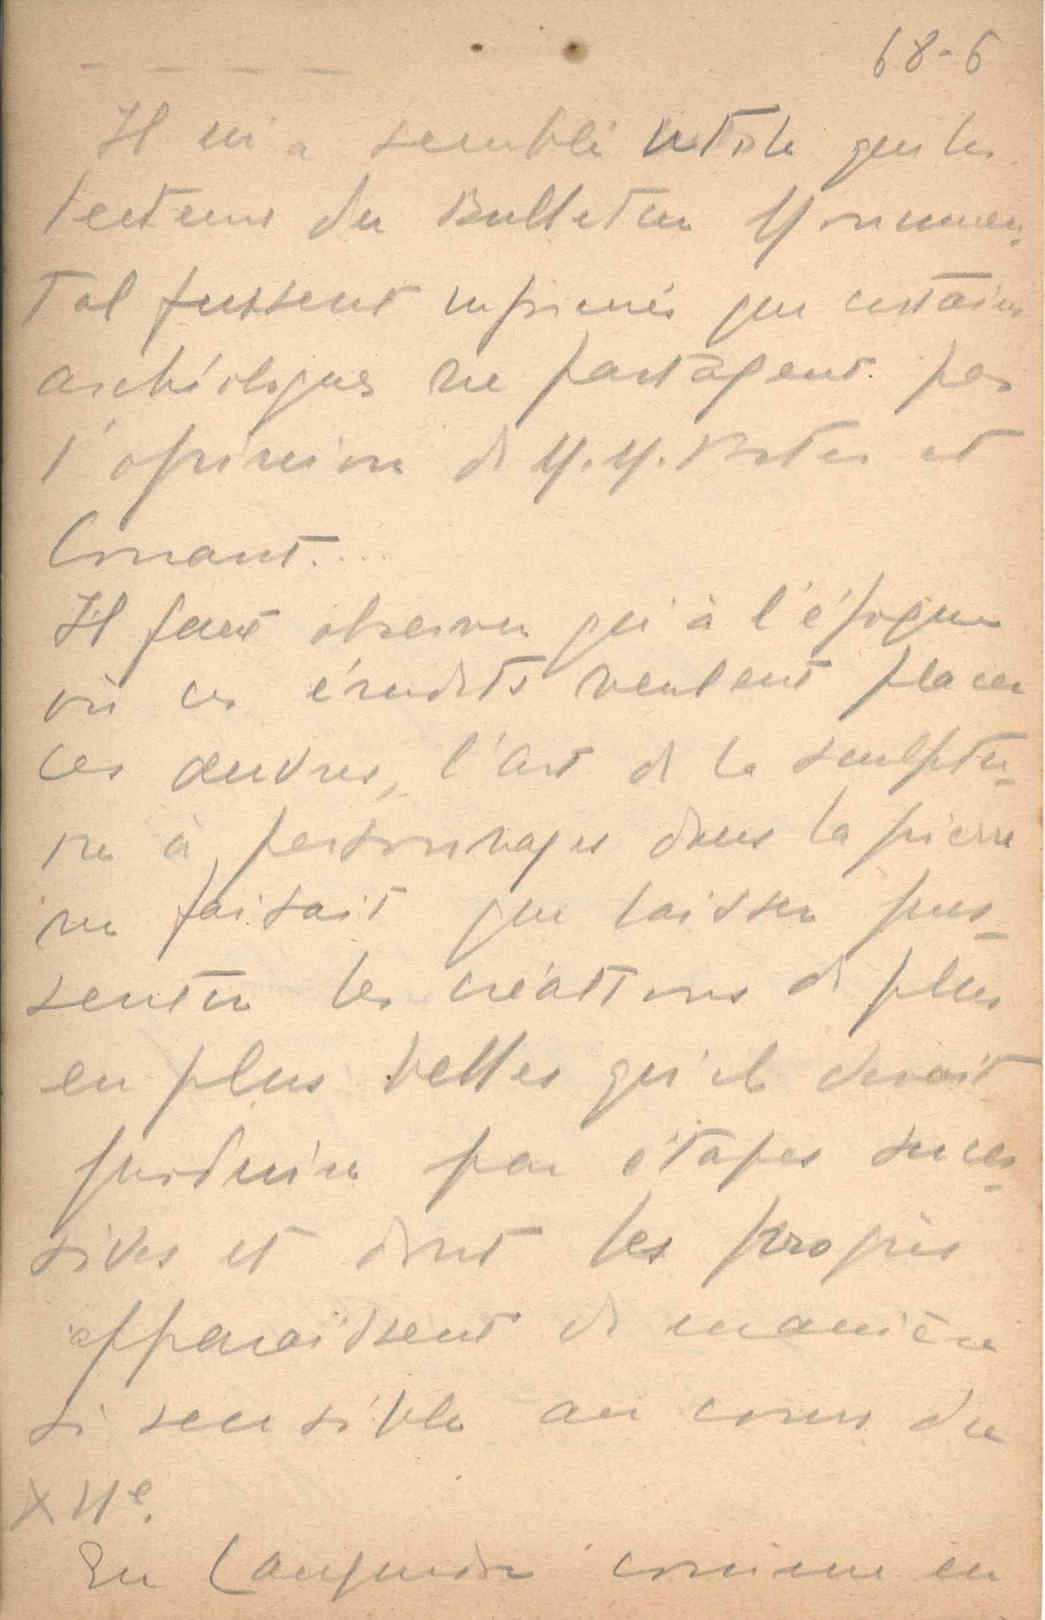 68-6
Il m'a semblé utile que les
lecteurs du Bulletin Monumen-
tal fussent informés que certains
archéologues ne partagent pas
l'opinion de M.M. Porter et
Conant...
Il faut observer qu'à l'époque
où ces érudits veulent placer
ces œuvres, l'art de la sculptu-
re à personnages dans la pierre
ne faisait que laisser pres-
sentir les créations de plus
en plus belles qu'il devait
produire par étapes succes-
sives et dont les progrès
apparaissent de manière
si sensible au cours du
XIIe.
En Languedoc comme en